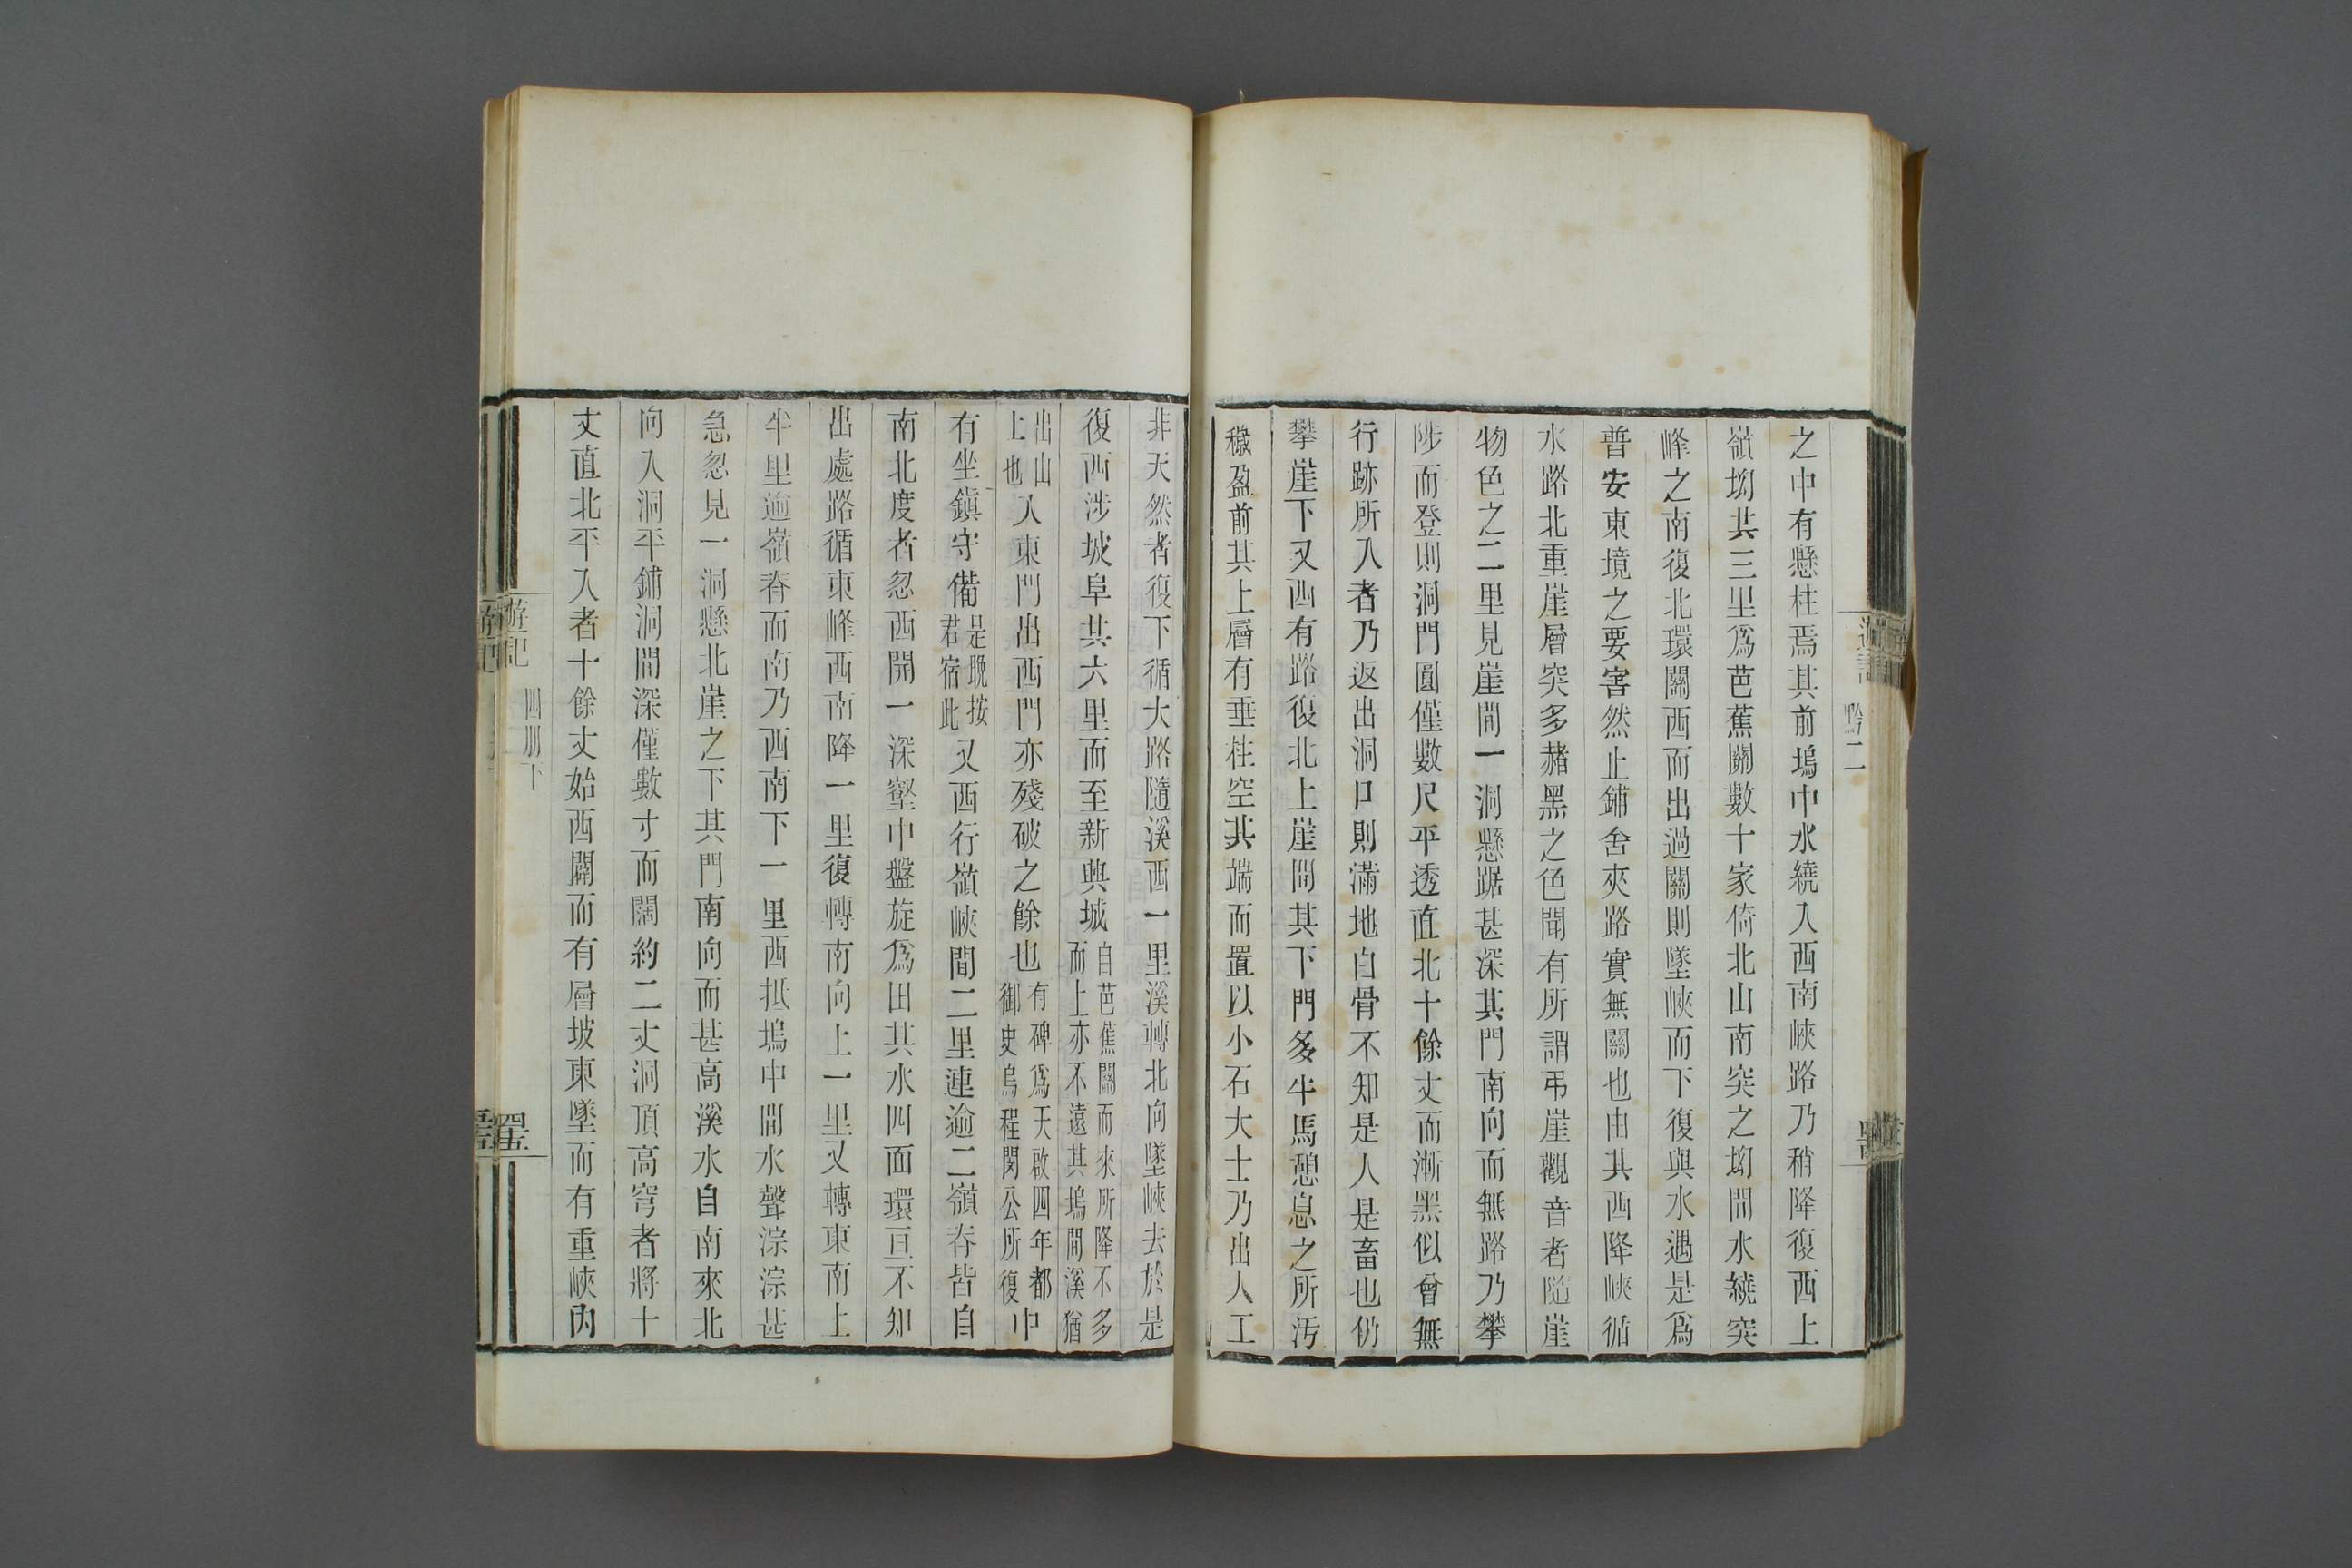 之中有懸柱焉其前塢中水繞入西南峽路乃稍降復西上
嶺坳共三里爲芭蕉關數十家倚北山南突之坳間水繞突
峰之南復北環關西而出過關則墜峽而下復與水遇是爲
普安東境之要害然止鋪舍夾路實無關也由其西降峽循
水路北重崖層突多赭黑之色聞有所謂弔崖觀音者隨崖
物色之二里見崖間一洞懸踞甚深其門南向而無路乃攀
陟而登則洞門圓僅數尺平透直北十餘丈而漸黑似曾無
行跡所入者乃返出洞口則滿地白骨不知是人是畜也仍
攀崖下又西有路復北上崖間其下門多牛馬憩息之所汚
穢盈前其上層有垂柱空其端而置以小石大士乃出人工
非天然者復下循大路隨溪西一里溪轉北向墜峽去於是
復西涉坡阜共六里而至新興城自芭蕉關而來所降不多
而上亦不遠其塢間溪猶
出山
上也入東門出西門亦殘破之餘也有碑爲天啟四年都
御史烏程閔公所復中
有坐鎭守備是晚按
君宿此又西行嶺峽間二里連逾二嶺脊皆自
南北度者忽西開一深壑中盤旋爲田其水四面環亘不知
出處路循東峰西南降一里復轉南向上一里又轉東南上
半里逾嶺脊而南乃西南下一里西抵塢中聞水聲淙淙甚
急忽見一洞懸北崖之下其門南向而甚高溪水自南來北
向入洞平鋪洞間深僅數寸而闊約二丈洞頂高穹者將十
丈直北平入者十餘丈始西闢而有層坡東墜而有重峽內
遊記
四冊下
黔二